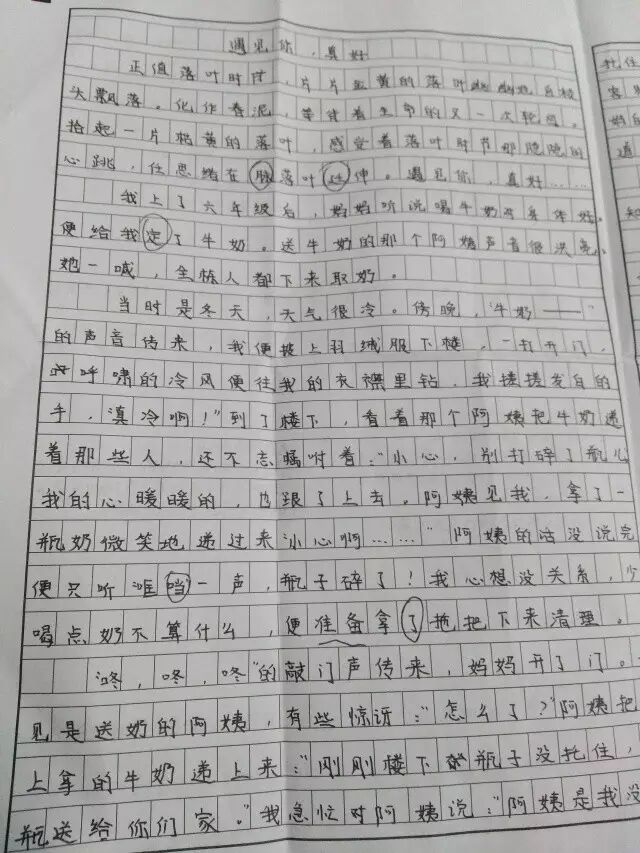 遇见你,真好
正值落叶时节,片片金黄的落叶从树枝
头飘落。化作春泥,等待着生命的又一次轮回。
拾起一片枯黄的落叶,感受着落叶时节那隐隐的
心跳,任思绪在随落叶延伸。遇见你,真好……
我上了六年级后,妈妈听说喝牛奶对身体好。
便给我定了牛奶。送牛奶的那个阿姨声音很洪亮,
她一喊,全栋人都下来取奶。
当时是冬天,天气很冷。傍晚,“牛奶——”
的声音传来,我便披上羽绒服下楼,一打开门,
呼啸的冷风便往我的衣襟里钻,我搓搓发白的
手,“真冷啊!”到了楼下,看着那个阿姨把牛奶递
着那些人,还不忘嘱咐着:“小心,别打碎了瓶儿
我的心暖暖的,也跟了上去。阿姨见我,拿了一
瓶奶微笑地递过来“小心啊……”阿姨的话没说完
便只听哐当一声,瓶子碎了!我心想没关系,少
喝点奶不算什么,便准备拿了拖把下来清理。
“咚,咚,咚”的敲门声传来,妈妈开了门。
见是送奶的阿姨,有些惊讶:“怎么了?”阿姨把
上拿的牛奶递上来:“刚刚楼下瓶子没托住,
瓶送给你们家。”我急忙对阿姨说:“阿姨是我没
托住
道